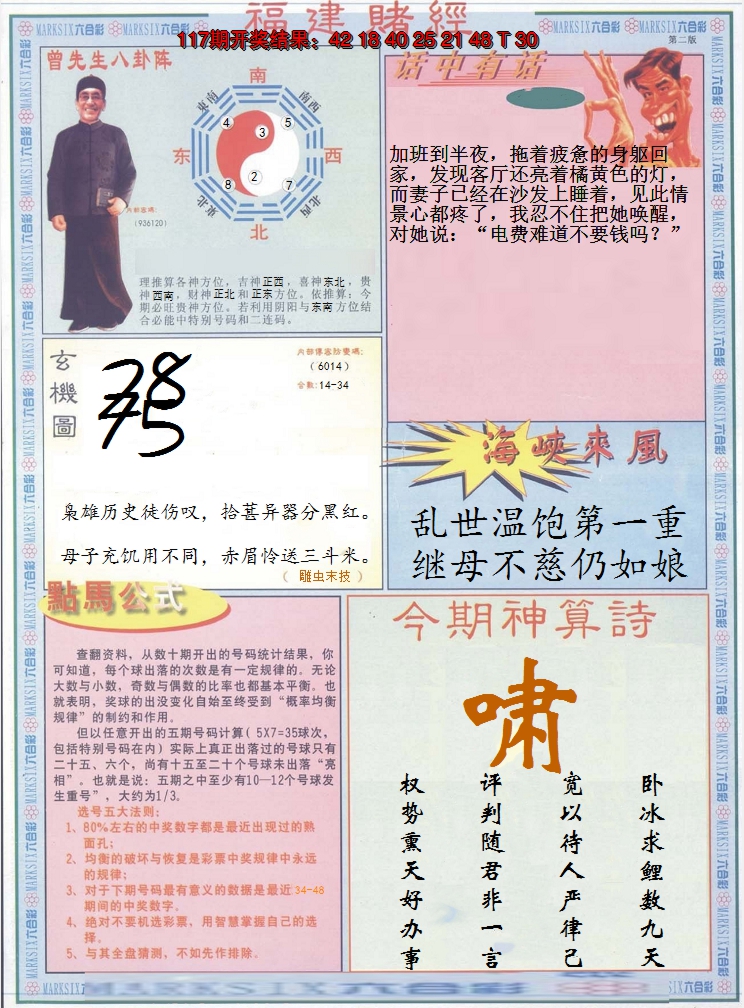 福建賭經
117期开奖结果：42 18 40 25 21 48 T 30
MARKSIX六合彩
第二版
曾先生八卦阵
南
东南
南西
4
3
5
东
西
8
2
7
东北
北西
北
内部密碼：
（936120）
理推算各神方位，吉神正西，喜神东北，贵
神西南，财神正北和正东方位。依推算：今
期必旺贵神方位。若利用阴阳与东南方位结
合必能中特别号码和二连码。
话中有话
加班到半夜，拖着疲惫的身躯回
家，发现客厅还亮着橘黄色的灯，
而妻子已经在沙发上睡着，见此情
景心都疼了，我忍不住把她唤醒，
对她说：“电费难道不要钱吗？”
玄機圖
78
75
内部傳密防變碼：
（6014）
合数：14-34
枭雄历史徒伤叹，拾葚异器分黑红。
母子充饥用不同，赤眉怜送三斗米。
（ 雕虫末技 ）
海峽來風
乱世温饱第一重
继母不慈仍如娘
點馬公式
查翻资料，从数十期开出的号码统计结果，你
可知道，每个球出落的次数是有一定规律的。无论
大数与小数，奇数与偶数的比率也都基本平衡。也
就表明，奖球的出没变化自始至终受到“概率均衡
规律”的制约和作用。
但以任意开出的五期号码计算（5X7=35球次，
包括特别号码在内）实际上真正出落过的号球只有
二十五、六个，尚有十五至二十个号球未出落“亮
相”。也就是说：五期之中至少有10—12个号球发
生重号”，大约为1/3。
选号五大法则：
1、80%左右的中奖数字都是最近出现过的熟
面孔；
2、均衡的破坏与恢复是彩票中奖规律中永远
的规律；
3、对于下期号码最有意义的数据是最近34-48
期间的中奖数字。
4、绝对不要机选彩票，用智慧掌握自己的选
择。
5、与其全盘猜测，不如先作排除。
今期神算詩
啸
卧冰求鲤数九天
宽以待人严律己
评判随君非一言
权势熏天好办事